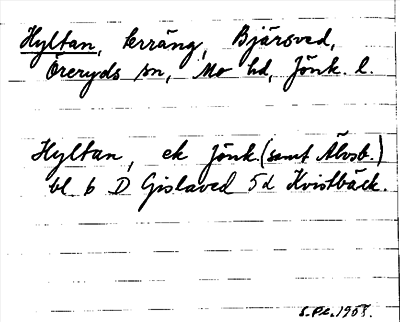 Hyltan, terräng, Bjärsved,
Öreryds sn, Mo hd, Jönk. l.
Hyltan, ek Jönk (samt Älvsb.)
bl 6 D Gislaved 5d Kvistbäck.
1958.